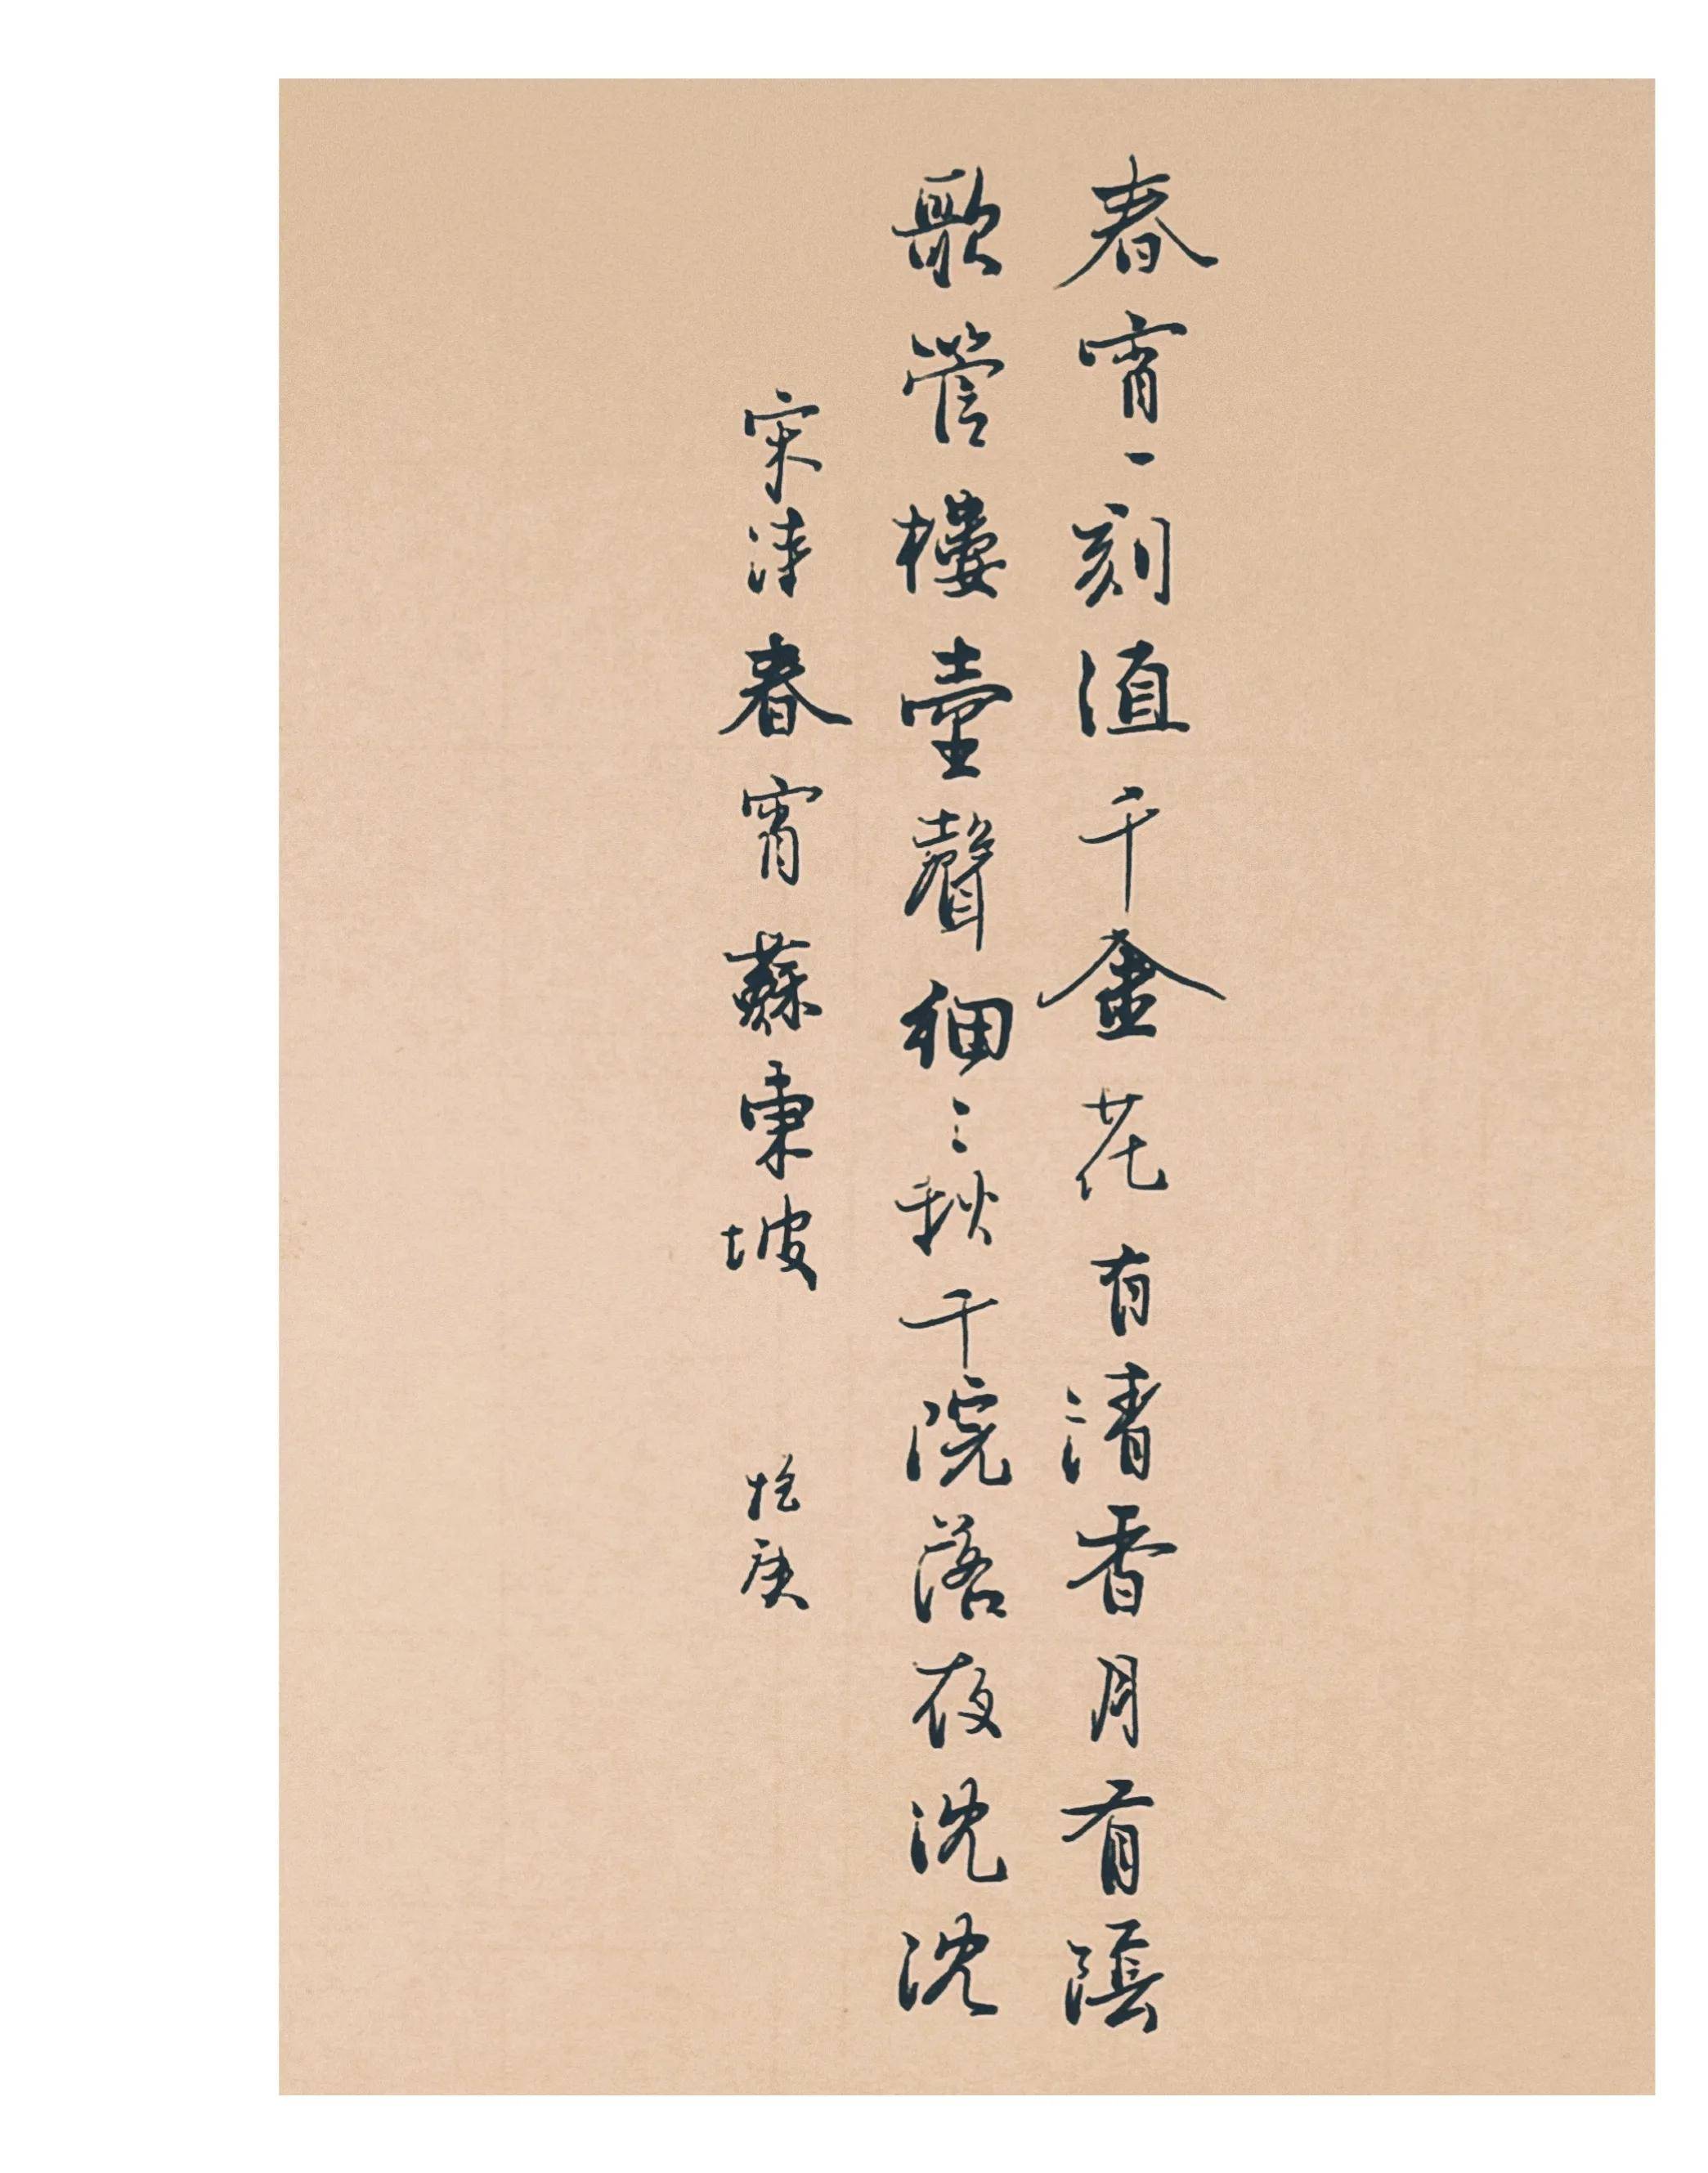 春宵一刻值千金花有清香月有陰
歌管樓臺聲細〻秋千院落夜沈沈
宋 春宵蘇東坡